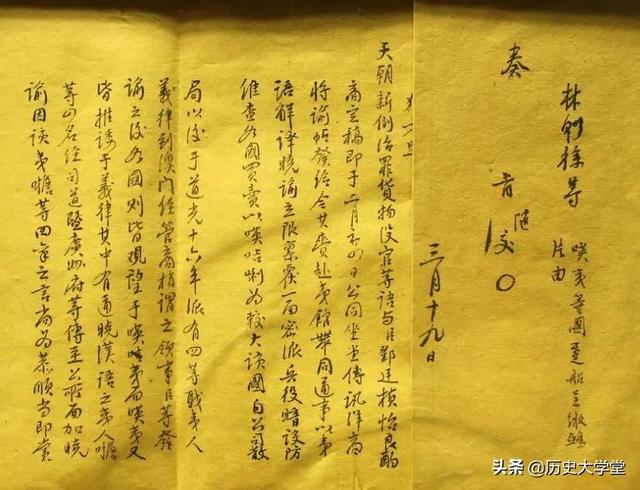 林則徐等
暎夷等國躉船呈繳鴉
片由
奏
三月十九日
天朝新例治罪貨物沒官等語与臣鄧廷楨怡良酌
商定稿即于二月初四日公同坐堂傳訊洋商
將諭帖發給令其賫赴夷館帶同通事以夷
語解譯曉諭立限禀覆一面密派兵役暗設防
維查各國買賣以暎咭唎為較大該國自公司散
局以後于道光十六年派有四等職夷人
義律到澳門經管商梢謂之領事臣等發
諭之後各國則皆觀望于暎夷而暎夷又
皆推諉于義律其中有通曉漢語之夷人噡
等四名經司道暨廣州府等傳至公所面加曉
諭因該夷噡等回稟之言尚為恭順當即賞
头条 @历史大学堂